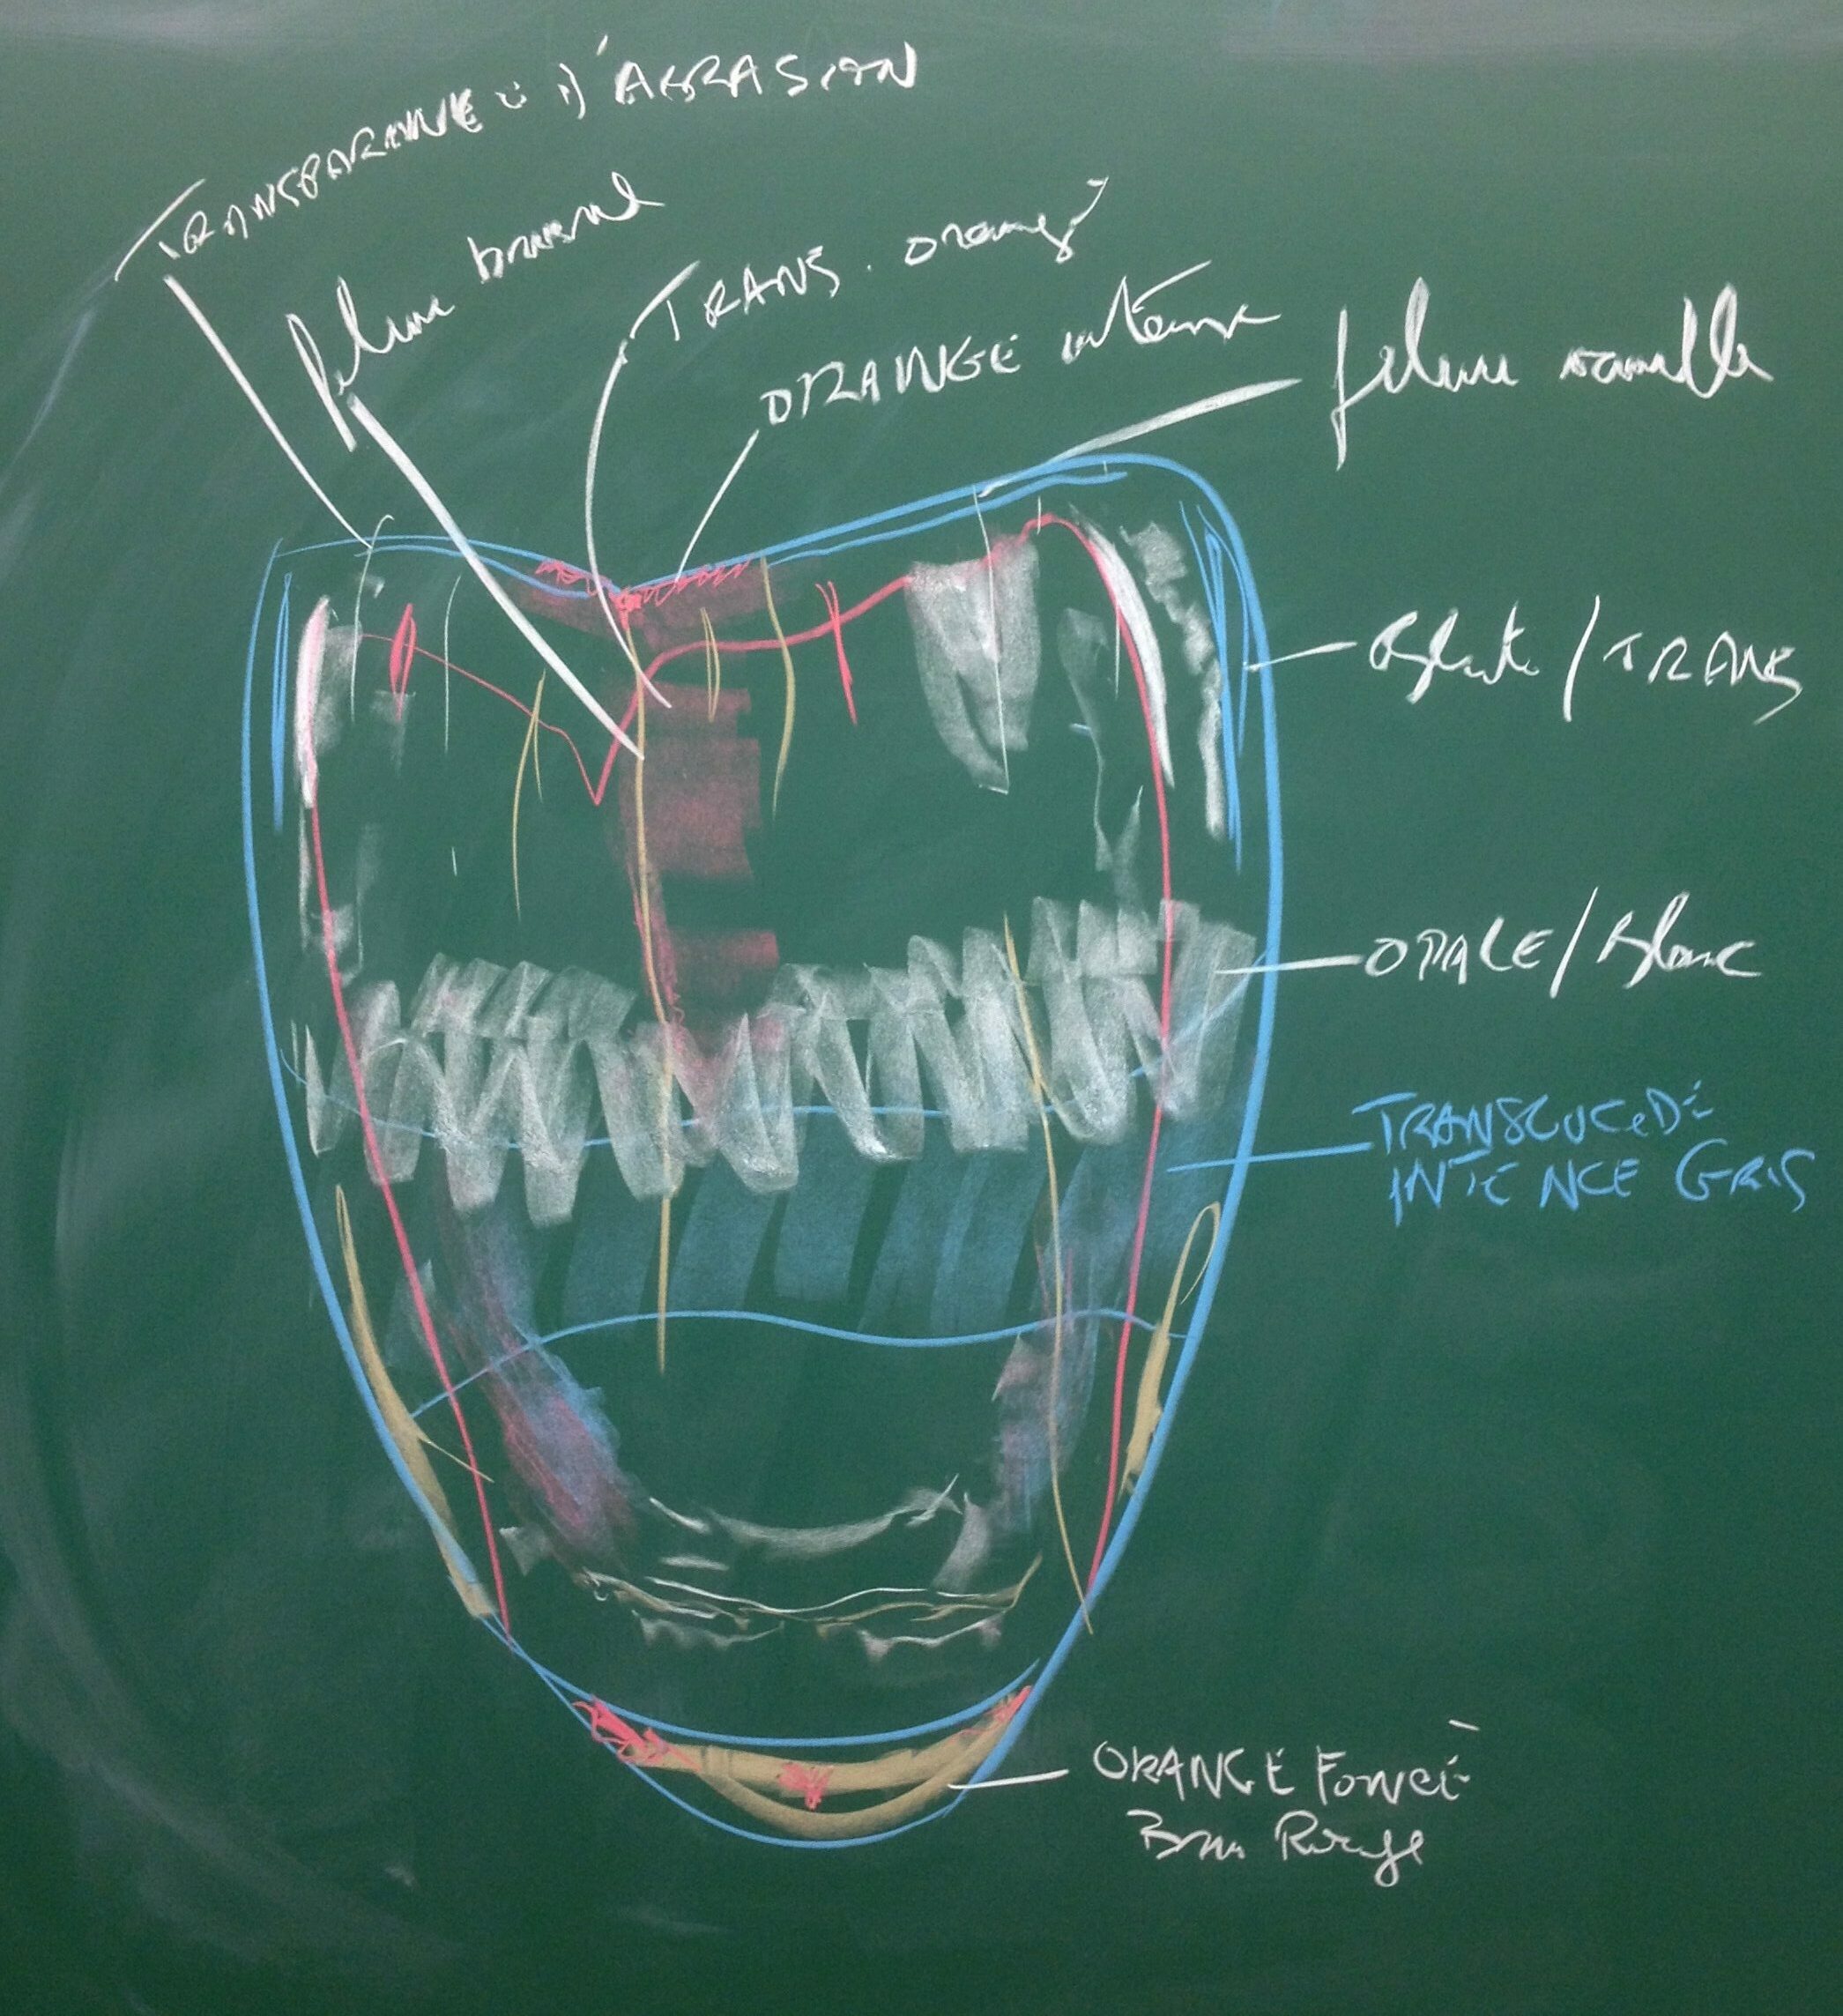 TRANSPARENCE D'ABRASION
fêlure
TRANS. orangé
ORANGE intense
fêlure
/TRANS
OPALE/Blanc
TRANSLUCEDE
INTENCE GRIS
ORANGE FONCÉ
Brun Rouge